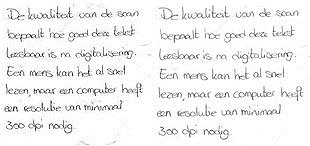 De kwaliteit van de scan
bepaalt hoe goed deze tekst
leesbaar is na digitalisering.
Een mens kan het al snel
lezen, maar een computer heeft
een resolutie van minimaal
300 dpi nodig.
De kwaliteit van de scan
bepaalt hoe goed deze tekst
leesbaar is na digitalisering.
Een mens kan het al snel
lezen, maar een computer heeft
een resolutie van minimaal
300 dpi nodig.